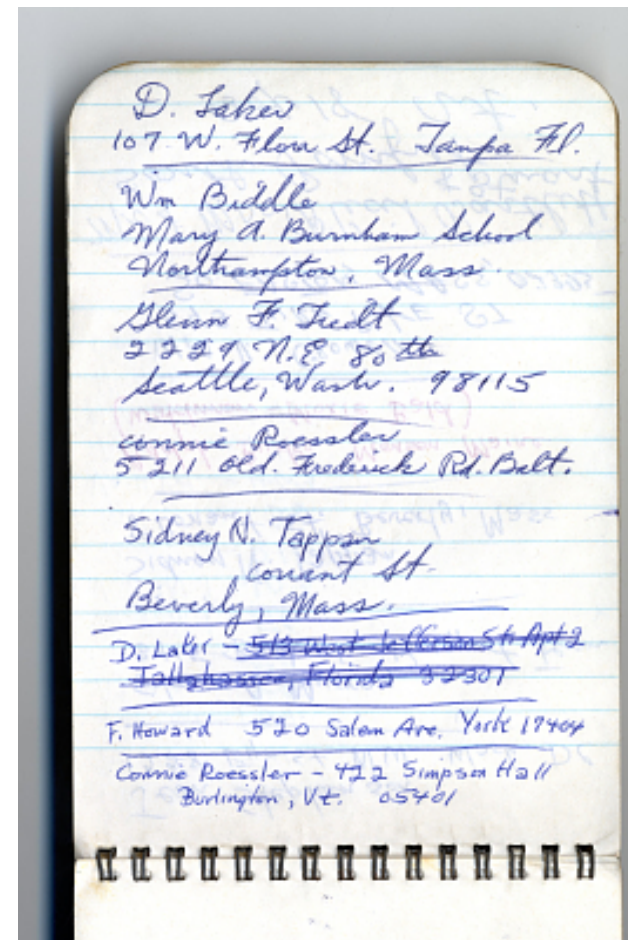 D. Laker
107 W. Flora St. Tampa Fl.
Wm Biddle
Mary A. Burnham School
Northampton, Mass.
Glenn F. Tredt
2229 N.E. 80th
Seattle, Wash. 98115
Connie Roessler
5211 Old. Frederick Rd. Balt.
Sidney N. Tappan
Conant St.
Beverly, Mass.
D. Laker - 513 West Jefferson St. Apt 2
Tallahassee, Florida 32301
F. Howard 520 Salem Ave. York 17404
Connie Roessler - 422 Simpson Hall
Burlington, Vt. 05401